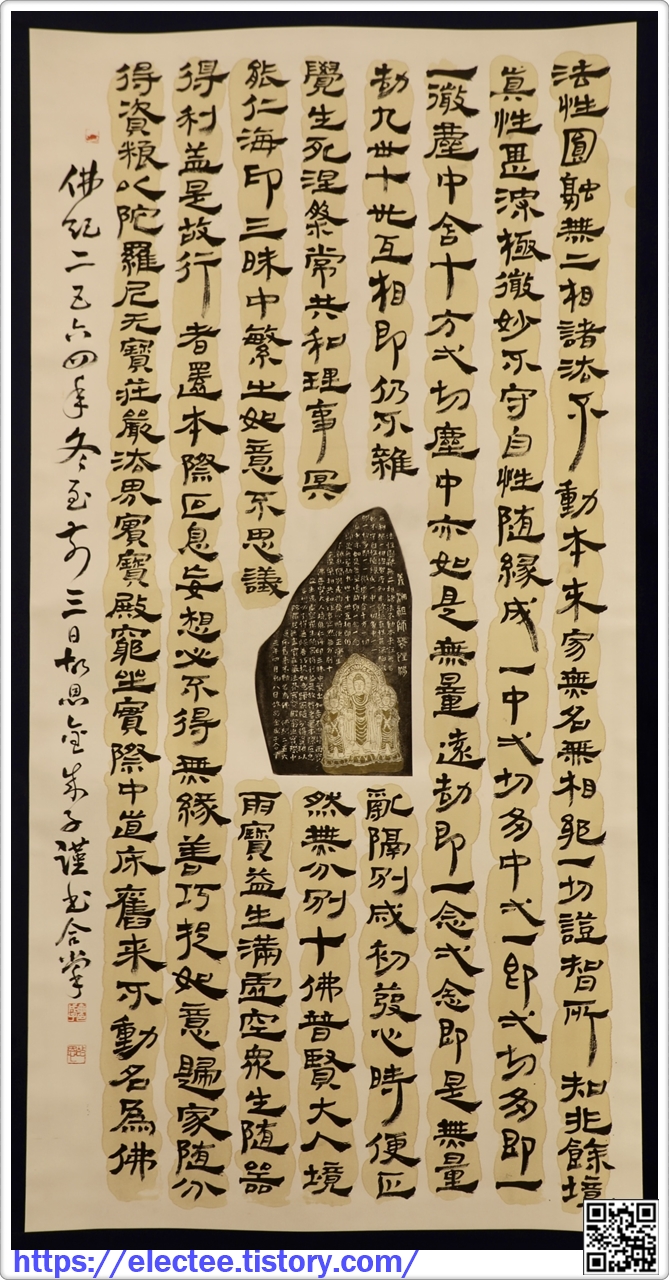 法性圓融無二相諸法不動本来家無名無相絶一切證智所知非餘境
真性甚深極微妙不守自性随緣成一中弌切多中弌一即弌切多即一
一微塵中含十方弌切塵中亦如是無量遠劫即一念弌念即是無量
劫九世十世互相即仍不雜亂隔別成初發心時便正
覺生死涅槃常共和理事冥然無分別十佛普賢大人境
能仁海印三昧中繁出如意不思議雨寶益生滿虛空衆生随器
得利益是故行者還本際叵息妄想必不得無緣善巧捉如意歸家随分
得資粮以陀羅尼无寶莊嚴法界實寶殿窮坐實際中道床舊来不動名為佛
佛紀二五六四年冬至前三日 恩 金 子謹書合掌
https://electee.tistory.com/